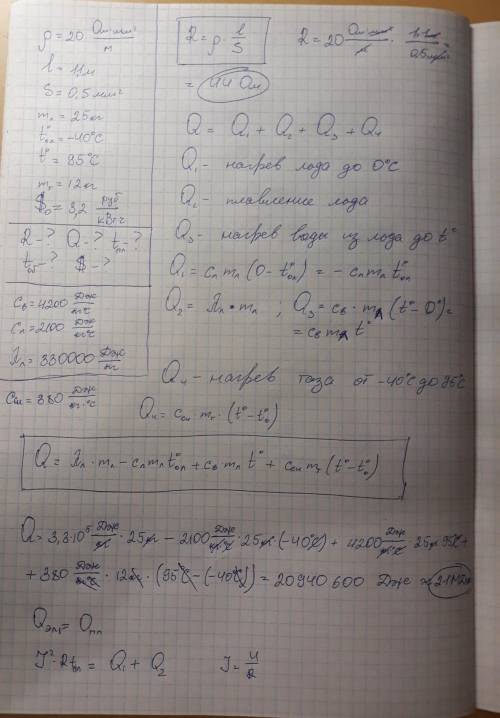 ρ = 20 Ом·мм²/м
l = 11м
S = 0,5 мм²
mл = 25кг
t°ол = -40°C
t° = 95°C
mт = 12кг
$₀ = 3,2 руб/кВт·ч
R-? Q-? tпл-?
tот-? $-?
cв = 4200 Дж/кг°C
cл = 2100 Дж/кг°C
λл = 330000 Дж/кг
cси = 380 Дж/кг·°C
R = ρ · l/S
R = 20 Ом·мм²/м · 11м/0,5мм² =
= 440 Ом
Q = Q₁ + Q₂ + Q₃ + Q₄
Q₁ - нагрев льда до 0°C
Q₂ - плавление льда
Q₃ - нагрев воды из льда до t°
Q₁ = cл mл (0 - t°ол) = - cл mл t°ол
Q₂ = λл · mл ; Q₃ = cв · mл (t° - 0°) =
= cв mл t°
Q₄ - нагрев таза от -40°C до 95°C
Q₄ = cси · mт · (t° - t°₀)
Q = λл · mл - cл mл t°ол + cв mл t° + cси mт (t° - t°₀)
Q = 3,3·10⁵ Дж/кг · 25кг - 2100 Дж/кг°C · 25кг · (-40°C) + 4200 Дж/кг°C · 25кг 95°C +
+ 380 Дж/кг°C · 12кг · (95°C - (-40°C)) = 20940600 Дж ≈ 21МДж
Qэл₁ = Qпл
J² · R tпл = Q₁ + Q₂ J = U/R